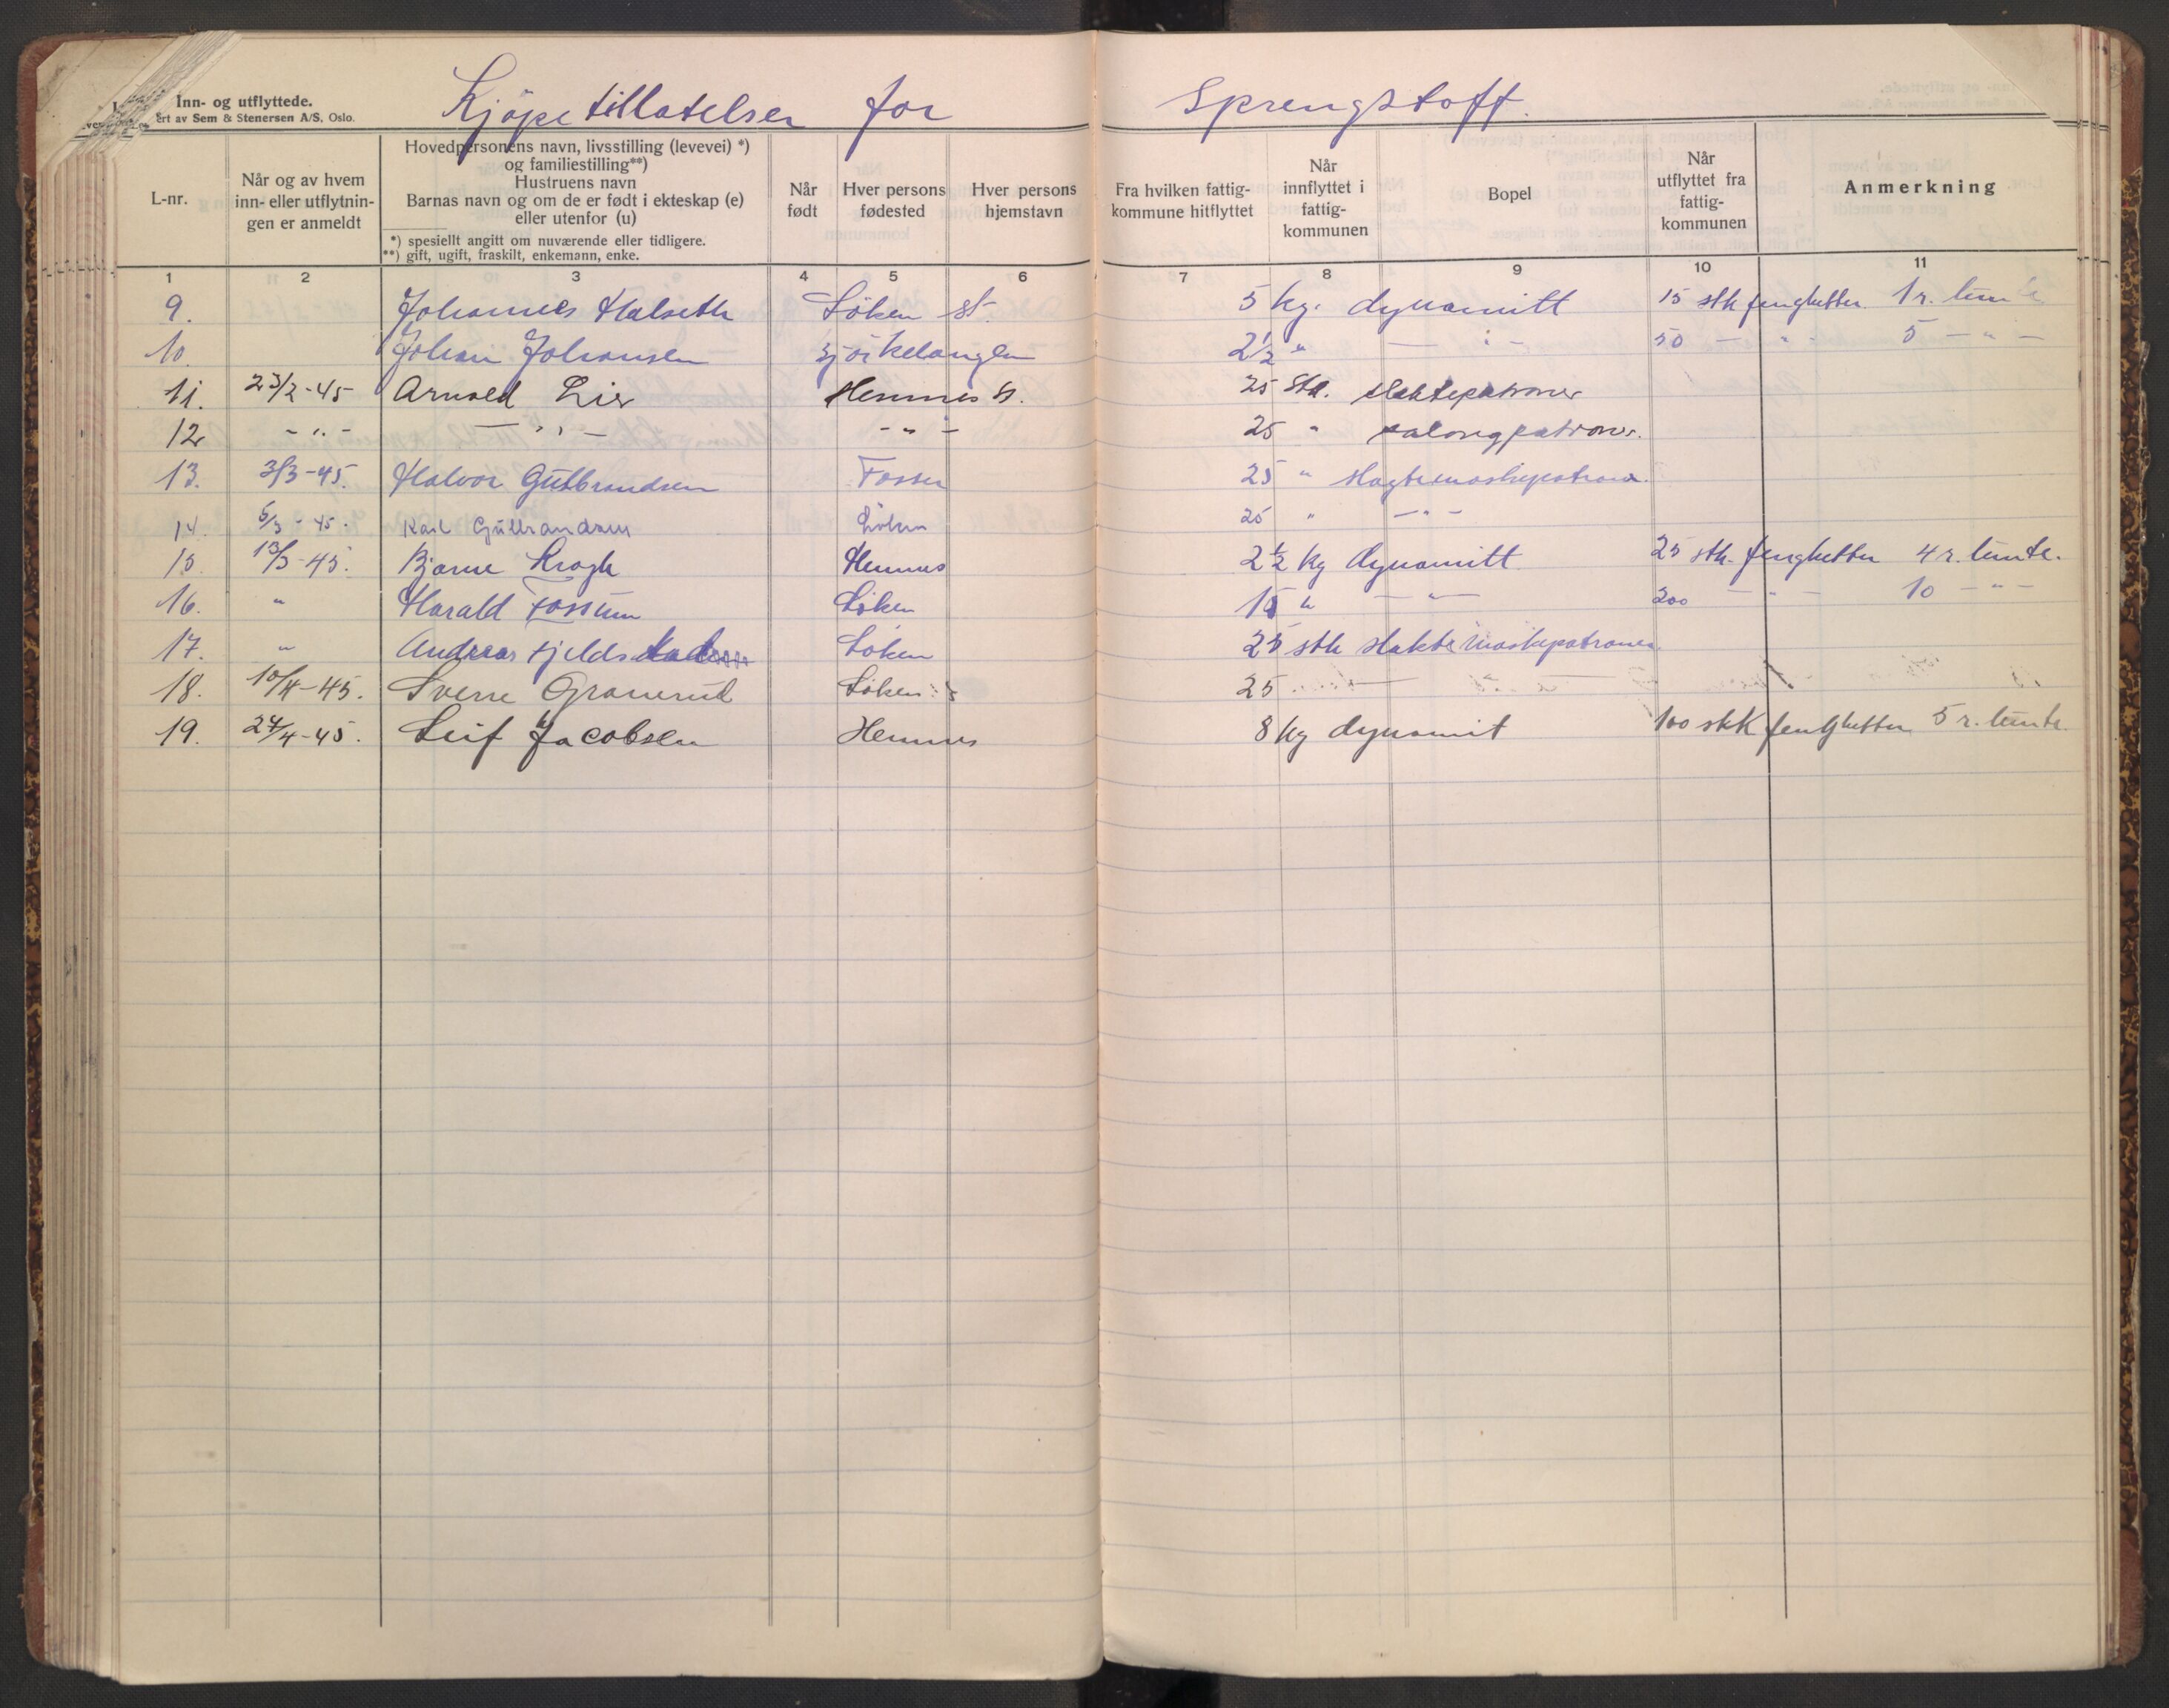 Inn- og utflyttede.
ert av Sem & Stenersen A/S, Oslo.
Kjøpetillatelser for Sprengstoff.
L-nr.
Når og av hvem inn- eller utflytnin- gen er anmeldt
Hovedpersonens navn, livsstilling (levevei) *)
og familiestilling**)
Hustruens navn
Barnas navn og om de er født i ekteskap (e)
eller utenfor (u)
*) spesiellt angitt om nuværende eller tidligere.
**) gift, ugift, fraskilt, enkemann, enke.
Når født
Hver persons fødested
Hver persons hjemstavn
Fra hvilken fattig- kommune hitflyttet
Når innflyttet i fattig- kommunen
Bopel
Når utflyttet fra fattig- kommunen
Anmerkning
1 2 3 4 5 6 7 8 9 10 11
9. Johannes Halseth Löken st. 5 kg. dynamitt 15 stk fenghetter 1 r. lunte
10. Johan Johansen Bjørkelangen 2½ " — " — 50 — " - 5 — " —
11. 23/2-45 Arnold Lier Hemnes st. 25 stk. slaktepatroner
12 - " - — " — - " - 25 " salongpatroner.
13. 3/3-45. Halvor Gulbrandsen Fosser 25 " slagtemaskepatroner
14. 6/3-45. Karl Gulbrandsen Löken 25 " — " —
15. 13/3-45. Bjarne Krogh Hemnes 2½ kg dynamitt 25 stk. fenghetter 4 r. lunte.
16. " Harald Fossum Löken 15 " — " — 200 — " — 10 — " —
17. " Andreas Fjeldstad Löken 25 stk slaktemaskepatroner
18. 10/4-45. Sverre Granerud Löken 25 " —
19. 24/4-45. Leif Jacobsen Hemnes 8 kg dynamit 100 stkk fenghetter 5 r. lunte.